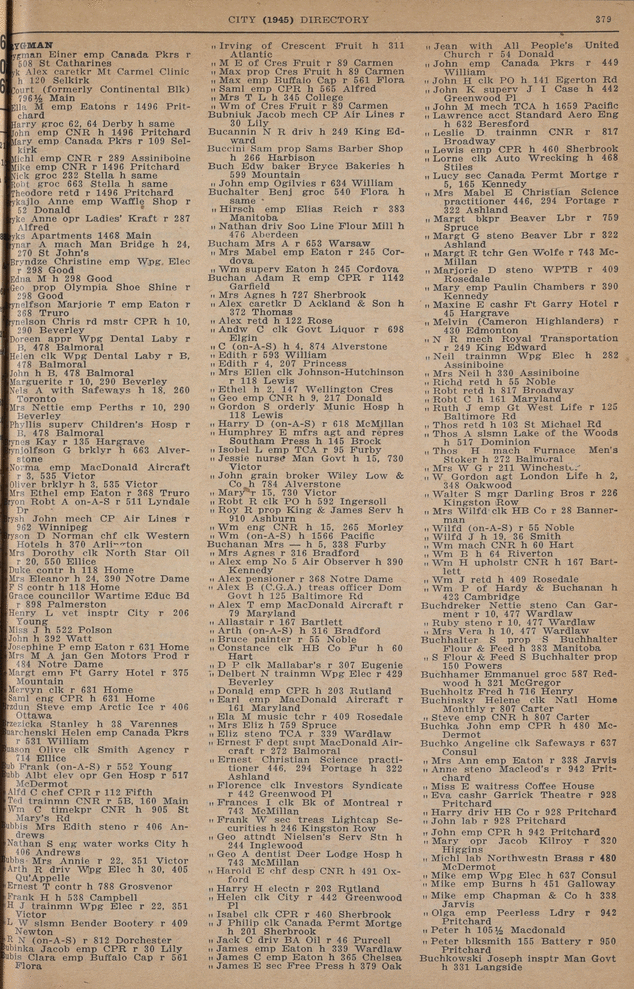 CITY (1945) DIRECTORY 379
YGMAN
ygman Einer emp Canada Pkrs r
508 St Catharines
yk Alex caretkr Mt Carmel Clinic
h 120 Selkirk
Court (formerly Continental Blk)
796½ Main
Ella M emp Eatons r 1496 Prit-
chard
Harry groc 62, 64 Derby h same
John emp CNR h 1496 Pritchard
Mary emp Canada Pkrs r 109 Sel-
kirk
Michl emp CNR r 289 Assiniboine
Mike emp CNR r 1496 Pritchard
Nick groc 232 Stella h same
Robt groc 663 Stella h same
Theodore retd r 1496 Pritchard
ykajlo Anne emp Waffle Shop r
52 Donald
yke Anne opr Ladies' Kraft r 287
Alfred
yks Apartments 1468 Main
ynar A mach Man Bridge h 24,
270 St John's
Bryndze Christine emp Wpg. Elec
r 298 Good
Edna M h 298 Good
Geo prop Olympia Shoe Shine r
298 Good
ynelfson Marjorie T emp Eaton r
368 Truro
ynelson Chris rd mstr CPR h 10,
290 Beverley
Doreen appr Wpg Dental Laby r
B, 478 Balmoral
Helen clk Wpg Dental Laby r B,
478 Balmoral
John h B, 478 Balmoral
Marguerite r 10, 290 Beverley
Nels A with Safeways h 18, 260
Toronto
Mrs Nettie emp Perths r 10, 290
Beverley
Phyllis superv Children's Hosp r
B, 478 Balmoral
ynes Kay r 135 Hargrave
ynjolfson G brklyr h 663 Alver-
stone
Norma emp MacDonald Aircraft
r 3, 535 Victor
Oliver brklyr h 3, 535 Victor
Mrs Ethel emp Eaton r 368 Truro
ryon Robt A on-A-S r 511 Lyndale
Dr
rysh John mech CP Air Lines r
962 Winnipeg
ryson D Norman chf clk Western
Hotels h 370 Arlington
Mrs Dorothy clk North Star Oil
r 20, 550 Ellice
Duke contr h 118 Home
Mrs Eleanor h 24, 390 Notre Dame
F S contr h 118 Home
Grace councillor Wartime Educ Bd
r 898 Palmerston
Henry L vet insptr City r 206
Young
Miss J h 522 Polson
John h 392 Watt
Josephine P emp Eaton r 631 Home
Mrs M A jan Gen Motors Prod r
484 Notre Dame
Margt emp Ft Garry Hotel r 375
Mountain
Mervyn clk r 631 Home
Saml eng CPR h 631 Home
Steve emp Arctic Ice r 406
Ottawa
rzezicka Stanley h 38 Varennes
Helen emp Canada Pkrs
r 531 William
Olive clk Smith Agency r
714 Ellice
ub Frank (on-A-S) r 552 Young
Albt elev opr Gen Hosp r 517
McDermot
Alfd C chef CPR r 112 Fifth
Ted trainmn CNR r 5B, 160 Main
Wm C timekpr CNR h 905 St
Mary's Rd
Mrs Edith steno r 406 An-
drews
Nathan S eng water works City h
406 Andrews
Mrs Annie r 22, 351 Victor
Arth R driv Wpg Elec h 30, 405
Qu'Appelle
Ernest T contr h 788 Grosvenor
Frank H h 538 Campbell
H J trainmn Wpg Elec r 22, 351
Victor
L W slsmn Bender Bootery r 409
Newton
R N (on-A-S) r 812 Dorchester
Jacob emp CPR r 30 Lily
Clara emp Buffalo Cap r 561
Flora
„ Irving of Crescent Fruit h 311
Atlantic
„ M E of Cres Fruit r 89 Carmen
„ Max prop Cres Fruit h 89 Carmen
„ Max emp Buffalo Cap r 561 Flora
„ Saml emp CPR h 565 Alfred
„ Mrs T L h 345 College
„ Wm of Cres Fruit r 89 Carmen
Bubniuk Jacob mech CP Air Lines r
30 Lily
Bucannin N R driv h 249 King Ed-
ward
Buccini Sam prop Sams Barber Shop
h 266 Harbison
Buch Edw baker Bryce Bakeries h
599 Mountain
„ John emp Ogilvies r 634 William
Buchalter Benj groc 540 Flora h
same
„ Hirsch emp Elias Reich r 383
Manitoba
„ Nathan driv Soo Line Flour Mill h
476 Aberdeen
Bucham Mrs A r 653 Warsaw
„ Mrs Mabel emp Eaton r 245 Cor-
dova
„ Wm superv Eaton h 245 Cordova
Buchan Adam R emp CPR r 1142
Garfield
„ Mrs Agnes h 727 Sherbrook
„ Alex caretkr D Ackland & Son h
372 Thomas
„ Alex retd h 122 Rose
„ Andw C clk Govt Liquor r 698
Elgin
„ C (on-A-S) h 4, 874 Alverstone
„ Edith r 593 William
„ Edith r 4, 207 Princess
„ Mrs Ellen clk Johnson-Hutchinson
r 118 Lewis
„ Ethel h 2, 147 Wellington Cres
„ Geo emp CNR h 9, 217 Donald
„ Gordon S orderly Munic Hosp h
118 Lewis
„ Harry D (on-A-S) r 618 McMillan
„ Humphrey E mfrs agt and repres
Southam Press h 145 Brock
„ Isobel L emp TCA r 95 Furby
„ Jessie nurse Man Govt h 15, 730
Victor
„ John grain broker Wiley Low &
Co h 784 Alverstone
„ Mary r 15, 730 Victor
„ Robt R clk PO h 592 Ingersoll
„ Roy R prop King & James Serv h
910 Ashburn
„ Wm eng CNR h 15, 265 Morley
„ Wm (on-A-S) h 1566 Pacific
Buchanan Mrs — h 5, 338 Furby
„ Mrs Agnes r 316 Bradford
„ Alex emp No 5 Air Observer h 390
Kennedy
„ Alex pensioner r 368 Notre Dame
„ Alex B (C.G.A.) treas officer Dom
Govt h 125 Baltimore Rd
„ Alex T emp MacDonald Aircraft r
79 Maryland
„ Allastair r 167 Bartlett
„ Arth (on-A-S) h 316 Bradford
„ Bruce painter r 55 Noble
„ Constance clk HB Co Fur h 60
Hart
„ D P clk Mallabar's r 307 Eugenie
„ Delbert N trainmn Wpg Elec r 429
Beverley
„ Donald emp CPR h 203 Rutland
„ Earl emp MacDonald Aircraft r
161 Maryland
„ Ela M music tchr r 409 Rosedale
„ Mrs Eliz h 759 Spruce
„ Eliz steno TCA r 339 Wardlaw
„ Ernest F dept supt MacDonald Air-
craft r 272 Balmoral
„ Ernest Christian Science practi-
tioner 446, 294 Portage h 322
Ashland
„ Florence clk Investors Syndicate
r 442 Greenwood Pl
„ Frances I clk Bk of Montreal r
743 McMillan
„ Frank W sec treas Lightcap Se-
curities h 246 Kingston Row
„ Geo attndt Nielsen's Serv Stn h
244 Inglewood
„ Geo A dentist Deer Lodge Hosp h
743 McMillan
„ Harold E chf desp CNR h 491 Ox-
ford
„ Harry H electn r 203 Rutland
„ Helen clk City r 442 Greenwood
Pl
„ Isabel clk CPR r 460 Sherbrook
„ J Philip clk Canada Permt Mortge
h 201 Sherbrook
„ Jack C driv BA Oil r 46 Purcell
„ James emp Eaton h 339 Wardlaw
„ James C emp Eaton h 365 Chelsea
„ James E sec Free Press h 379 Oak
„ Jean with All People's United
Church r 54 Donald
„ John emp Canada Pkrs r 449
William
„ John H clk PO h 141 Egerton Rd
„ John K superv J I Case h 442
Greenwood Pl
„ John M mech TCA h 1659 Pacific
„ Lawrence acct Standard Aero Eng
h 632 Beresford
„ Leslie D trainmn CNR r 817
Broadway
„ Lewis emp CPR h 460 Sherbrook
„ Lorne clk Auto Wrecking h 468
Stiles
„ Lucy sec Canada Permt Mortge r
5, 165 Kennedy
„ Mrs Mabel E Christian Science
practitioner 446, 294 Portage r
322 Ashland
„ Margt bkpr Beaver Lbr r 759
Spruce
„ Margt G steno Beaver Lbr r 322
Ashland
„ Margt R tchr Gen Wolfe r 743 Mc-
Millan
„ Marjorie D steno WPTB r 409
Rosedale
„ Mary emp Paulin Chambers r 390
Kennedy
„ Maxine E cashr Ft Garry Hotel r
45 Hargrave
„ Melvin (Cameron Highlanders) r
430 Edmonton
„ N R mech Royal Transportation
r 249 King Edward
„ Neil trainmn Wpg Elec h 282
Assiniboine
„ Mrs Neil h 330 Assiniboine
„ Richd retd h 55 Noble
„ Robt retd h 817 Broadway
„ Robt C h 161 Maryland
„ Ruth J emp Gt West Life r 125
Baltimore Rd
„ Thos retd h 103 St Michael Rd
„ Thos A slsmn Lake of the Woods
h 517 Dominion
„ Thos H mach Furnace Men's
Stoker h 272 Balmoral
„ Mrs W G r 211 Winchester
„ W Gordon agt London Life h 2,
348 Oakwood
„ Walter S mgr Darling Bros r 226
Kingston Row
„ Mrs Wilfd clk HB Co r 28 Banner-
man
„ Wilfd (on-A-S) r 55 Noble
„ Wilfd J h 19, 36 Smith
„ Wm mach CNR h 60 Hart
„ Wm B h 64 Riverton
„ Wm H upholstr CNR h 167 Bart-
lett
„ Wm J retd h 409 Rosedale
„ Wm P of Hardy & Buchanan h
423 Cambridge
Buchdreker Nettie steno Can Gar-
ment r 10, 477 Wardlaw
„ Ruby steno r 10, 477 Wardlaw
„ Mrs Vera h 10, 477 Wardlaw
Buchhalter S prop S Buchhalter
Flour & Feed h 383 Manitoba
„ S Flour & Feed S Buchhalter prop
150 Powers
Buchhamer Emmanuel groc 587 Red-
wood h 321 McGregor
Buchholtz Fred h 716 Henry
Buchinsky Helene clk Natl Home
Monthly r 807 Carter
„ Steve emp CNR h 807 Carter
Buchka John emp CPR h 480 Mc-
Dermot
Buchko Angeline clk Safeways r 637
Consul
„ Mrs Ann emp Eaton r 338 Jarvis
„ Anne steno Macleod's r 942 Prit-
chard
„ Miss E waitress Coffee House
„ Eva cashr Garrick Theatre r 928
Pritchard
„ Harry driv HB Co r 928 Pritchard
„ John lab r 928 Pritchard
„ John emp CPR h 942 Pritchard
„ Mary opr Jacob Kilroy r 320
Higgins
„ Michl lab Northwestn Brass r 480
McDermot
„ Mike emp Wpg Elec h 637 Consul
„ Mike emp Burns h 451 Galloway
„ Mike emp Chapman & Co h 338
Jarvis
„ Olga emp Peerless Ldry r 942
Pritchard
„ Peter h 105½ Macdonald
„ Peter blksmith 155 Battery r 950
Pritchard
Buchkowski Joseph insptr Man Govt
h 331 Langside